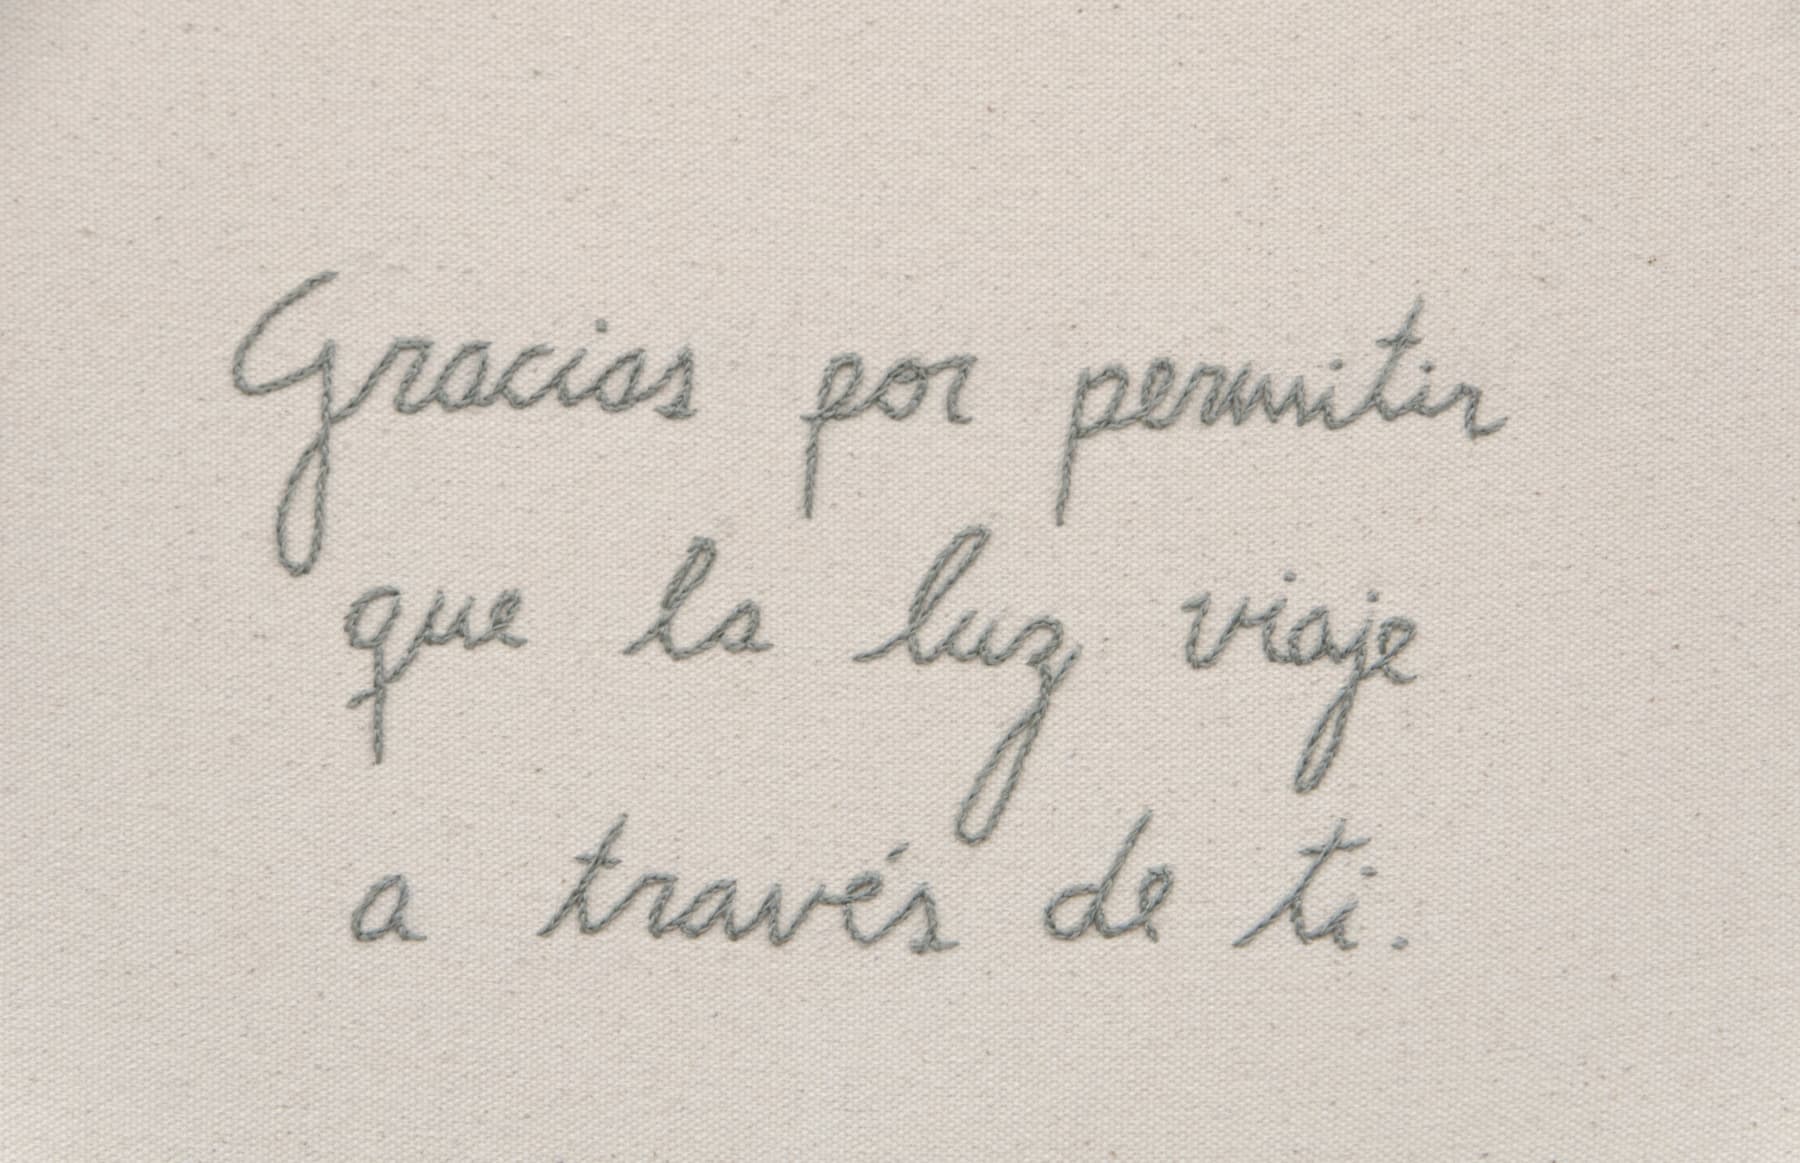 Gracias por permitir
que la luz viaje
a través de ti.